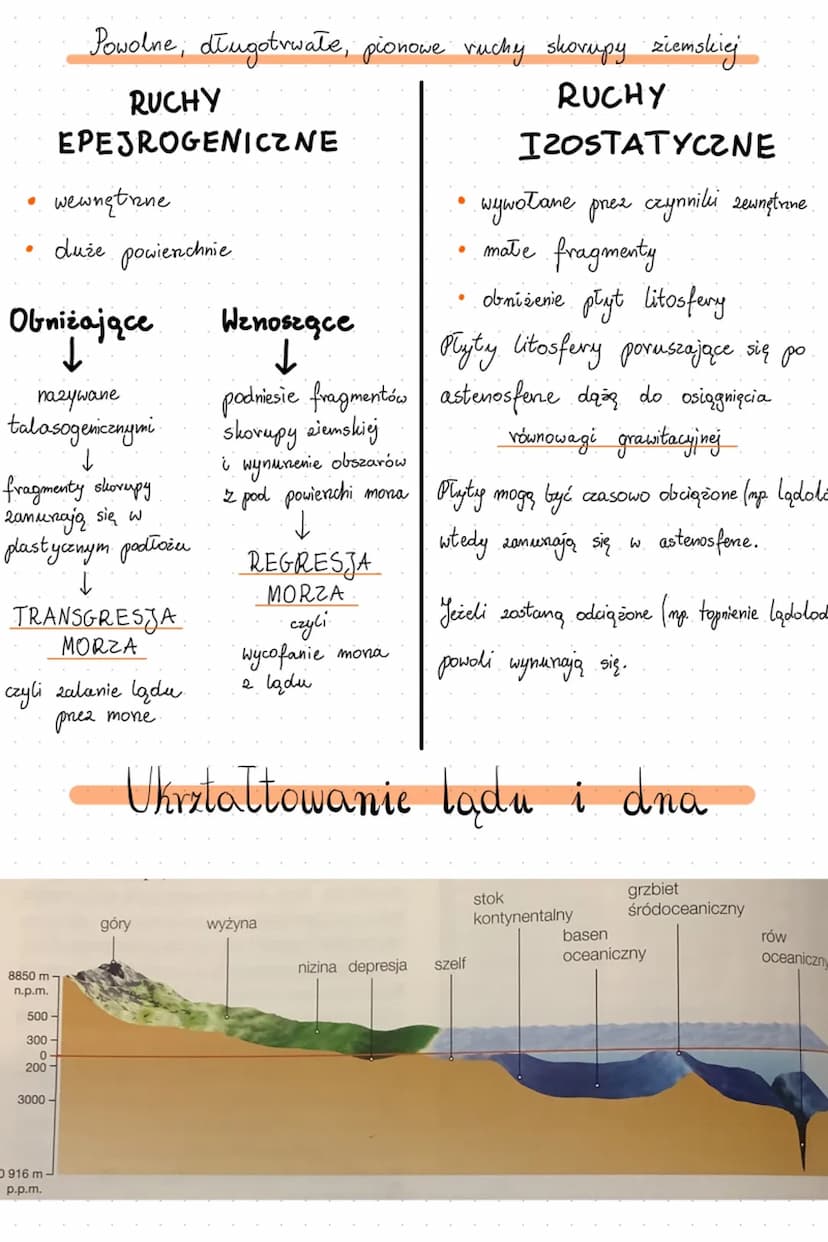 Powolne, długotrwałe, pionowe ruchy skorupy ziemskiej
RUCHY
EPEJROGENICZNE
• wewnętrzne
• duże powierzchnie
Obniżające
nazywane
talasogenicznymi
fragmenty skorupy
zanurzają się w
plastycznym podłożu
TRANSGRESJA
MORZA
czyli zalanie lądu
przez morze
Wznoszące
podniesie fragmentów
skorupy ziemskiej
i wynurzenie obszarów
z pod powierzchi morza
REGRESJA
MORZA
czyli
wycofanie morza
z lądu
RUCHY
IZOSTATYCZNE
• wywołane przez czynniki zewnętrzne
• małe fragmenty
• obniżenie płyt litosfery
Płyty litosfery poruszające się po
astenosferze dążą do osiągnięcia
równowagi grawitacyjnej
Płyty mogą być czasowo obciążone (np. lądolo
wtedy zanurzają się w astenosferze.
Jeżeli zostaną odciążone (np. topnienie lądolod
powoli wynurzają się.
Ukrztałtowanie lądu i dna
góry
wyżyna
nizina
depresja
szelf
stok
kontynentalny
basen
oceaniczny
grzbiet
śródoceaniczny
rów
oceaniczny
8850 m
n.p.m.
500
300
0
200
3000
0 916 m
p.p.m.